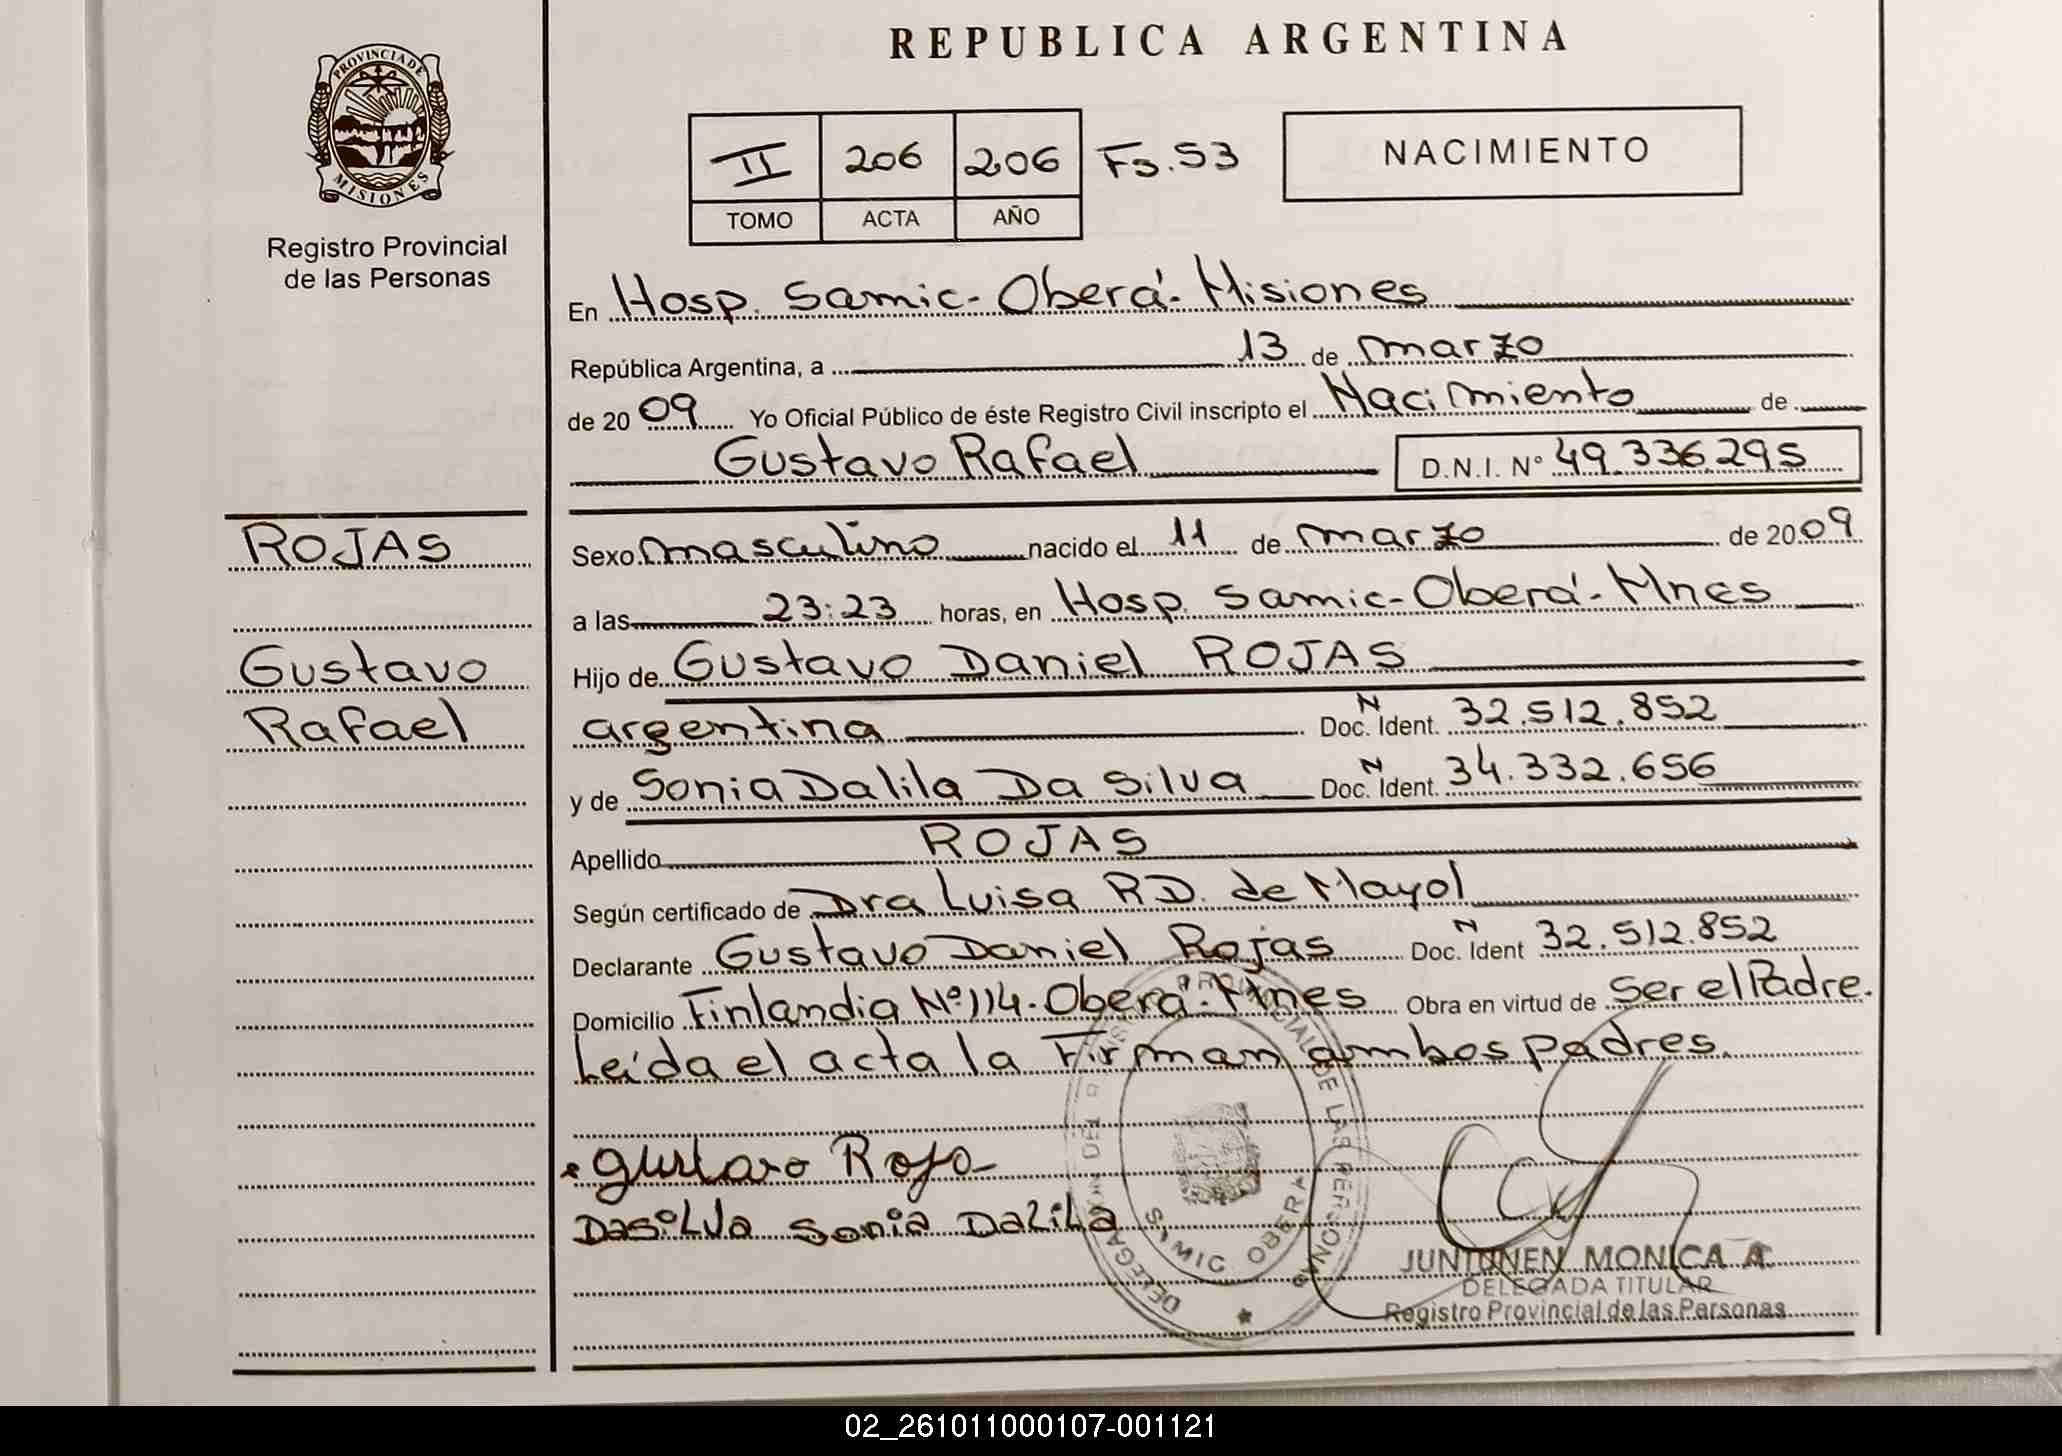 REPUBLICA ARGENTINA
PROVINCIA DE
MISIONES
Registro Provincial
de las Personas
II 206 206 Fs. 53
TOMO ACTA AÑO
NACIMIENTO
En Hosp. Samic - Oberá - Misiones
República Argentina, a 13 de marzo
de 2009 Yo Oficial Público de éste Registro Civil inscripto el Nacimiento de
Gustavo Rafael D.N.I. N° 49.336.295
ROJAS
Gustavo
Rafael
Sexo masculino nacido el 11 de marzo de 2009
a las 23:23 horas, en Hosp. Samic - Oberá - Mnes
Hijo de Gustavo Daniel ROJAS
argentina Doc. N Ident. 32.512.852
y de Sonia Dalila Da Silva Doc. N Ident. 34.332.656
Apellido ROJAS
Según certificado de Dra Luisa R.D. de Mayol
Declarante Gustavo Daniel Rojas Doc. N Ident 32.512.852
Domicilio Finlandia Nº 114 - Oberá - Mnes Obra en virtud de Ser el Padre.
Leída el acta la Firman ambos padres.
Gustavo Roja
Dasilva Sonia Dalila
SAMIC OBERA
JUNTUNEN MONICA A.
DELEGADA TITULAR
Registro Provincial de las Personas
02_261011000107-001121